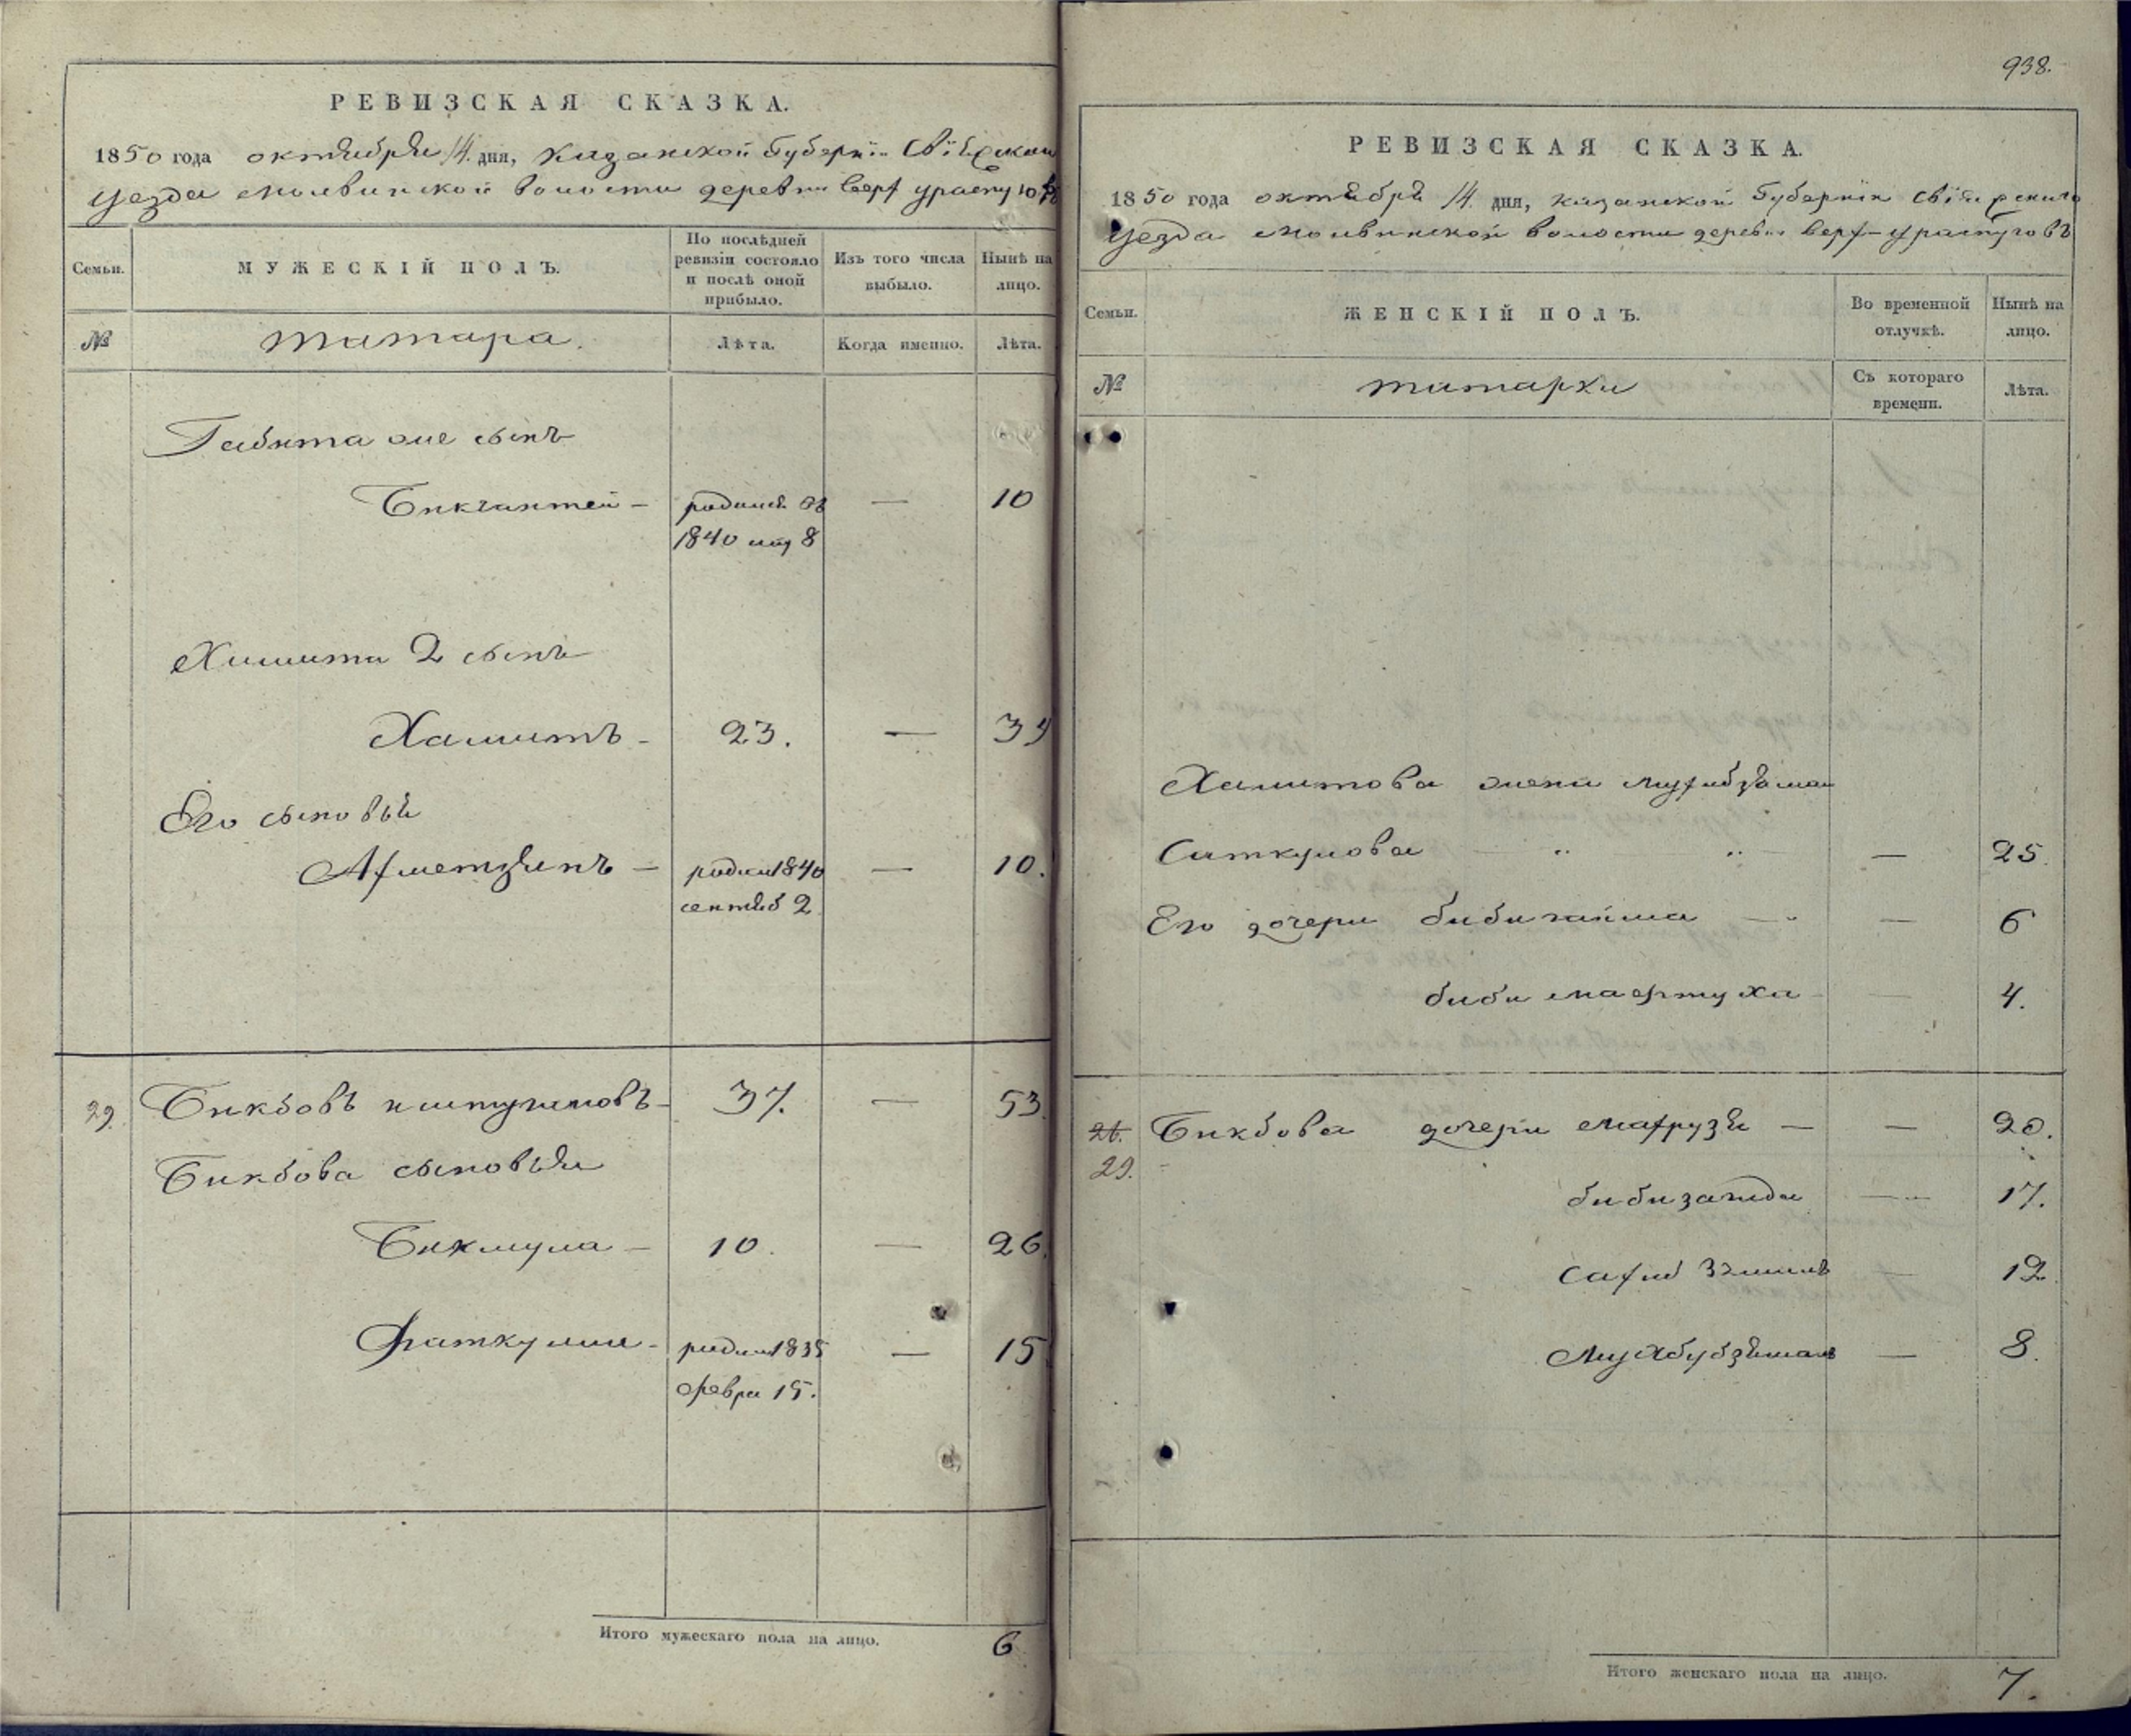 РЕВИЗСКАЯ СКАЗКА.
1850 года октября 14. дня, Казанской Губерніи Свіяжскаго
уезда Молвинской волости деревни Верх Ураспуговъ
Семьи.
МУЖЕСКІЙ ПОЛЪ.
По послѣдней ревизіи состояло и послѣ оной прибыло.
Изъ того числа выбыло.
Нынѣ на лицо.
№
татара.
Лѣта.
Когда именно.
Лѣта.
Габита же сынъ
Бикчантей — родился въ — 10
1840 мая 8
2 сынъ
Хамитъ — 23. — 39
Его сыновья
Ахметзянъ — родил 1840 — 10.
сентяб 2
29. Бикбовъ Ишмугимовъ — 37. — 53.
Бикбова сыновья
Бикмула — 10. — 26.
Фаткулла — родил 1835 — 15
Февра 15.
Итого мужескаго пола на лицо. 6
938.
РЕВИЗСКАЯ СКАЗКА.
1850 года октября 14. дня, Казанской Губерніи Свіяжскаго
уезда Молвинской волости деревни Верх-Ураспуговъ
Семьи.
ЖЕНСКІЙ ПОЛЪ.
Во временной отлучкѣ.
Нынѣ на лицо.
№
татарки
Съ котораго времени.
Лѣта.
Хамитова жена Мухибзяман
Саткулова — 25.
Его дочери Биби — 6
Биби — 4.
26. Бикбова дочери Махрузя — — 20.
29.
Биби — 17.
Сахиб — 12
— 8.
Итого женскаго пола на лицо. 7.